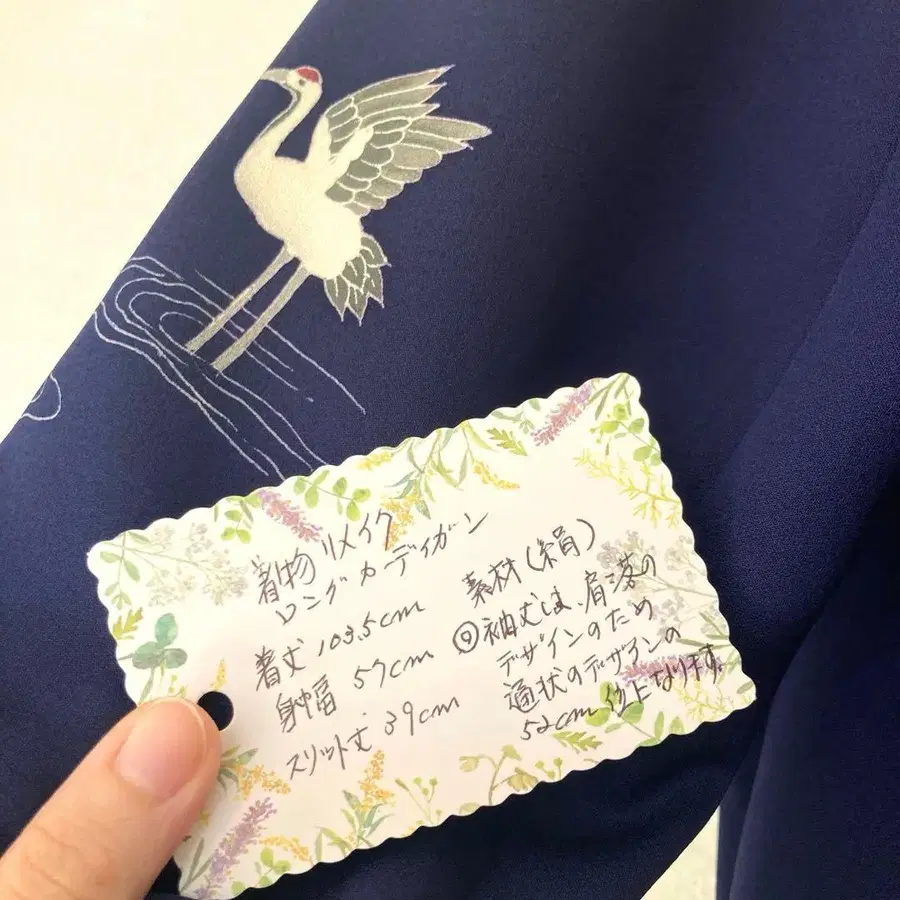 着物リメイク
ロングカーディガン
着丈 103.5cm
身幅 57cm
スリット丈 39cm
素材（絹）
袖丈は、肩落の
デザインのため
通状のデザインの
52cm 位になります。